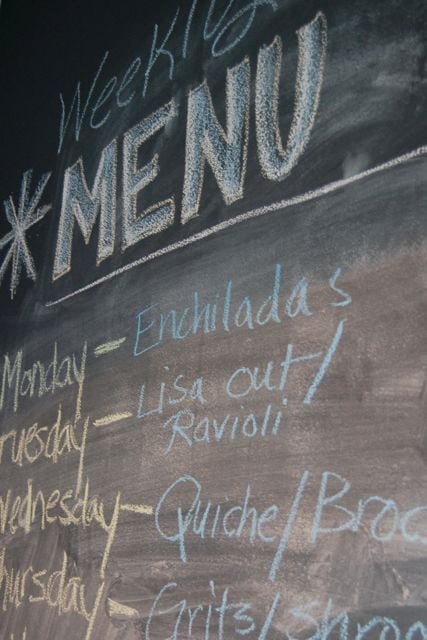 Weekly
*MENU
Monday - Enchiladas
Tuesday - Lisa out/
Ravioli
Wednesday - Quiche/Broc
Thursday - Gritz/Shro